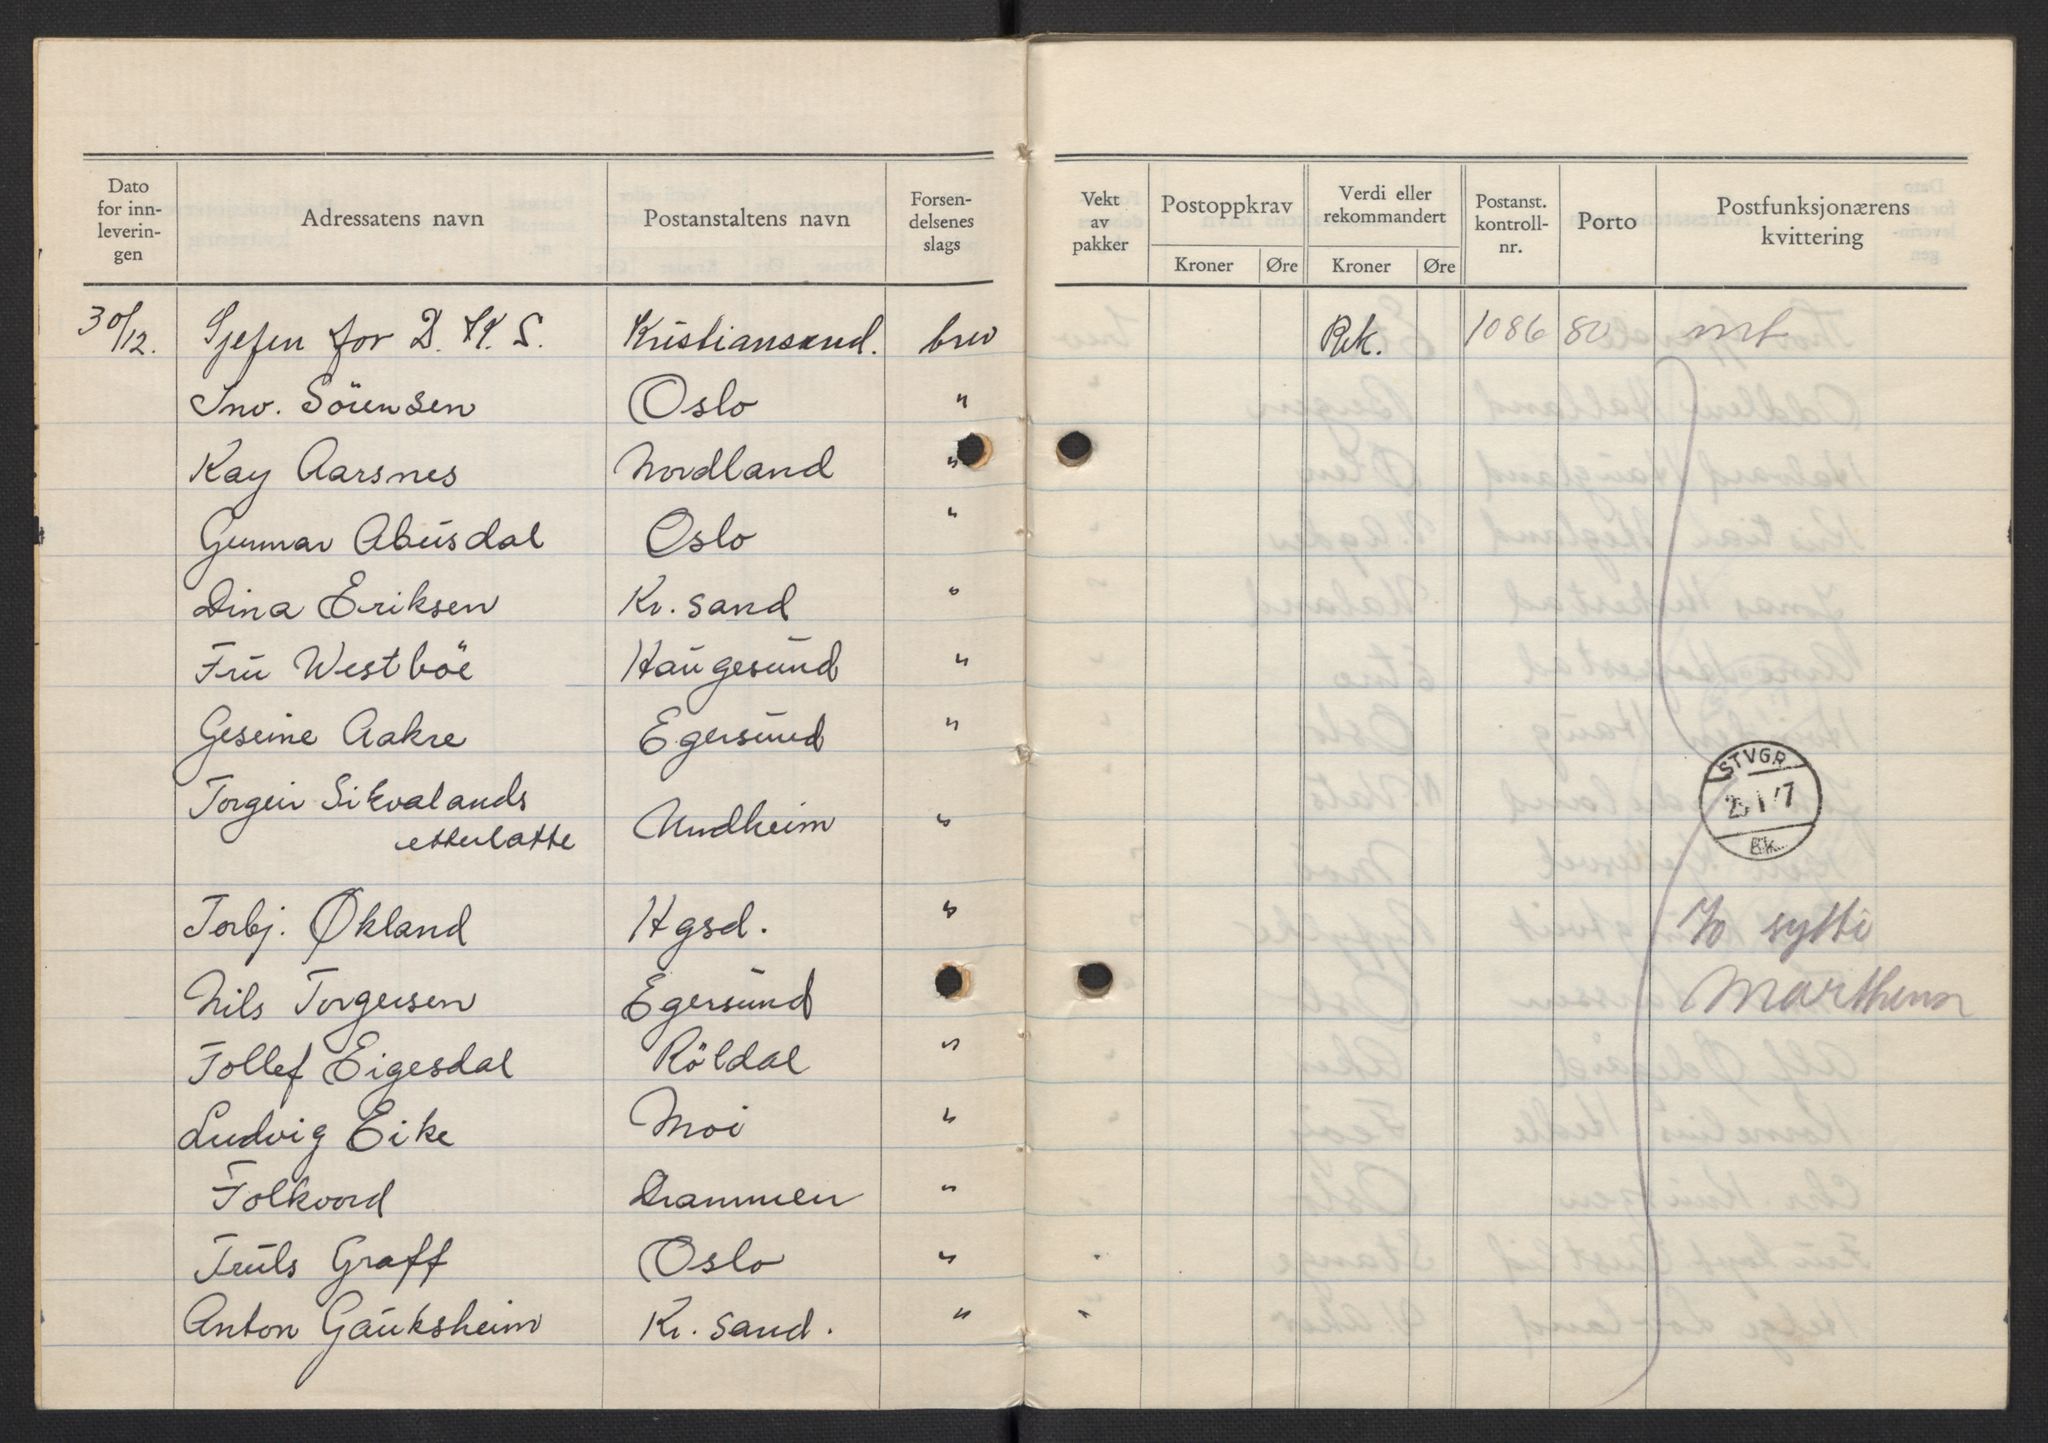 Dato for inn-leverin-gen | Adressatens navn | Postanstaltens navn | Forsen-delsenes slags | Vekt av pakker | Postoppkrav Kroner Øre | Verdi eller rekommandert Kroner Øre | Postanst. kontroll-nr. | Porto | Postfunksjonærens kvittering
30/12. Sjefen for D. K. S. Kristiansand. brev Rek. 1086 80 mt
Inv. Sörensen Oslo "
Kay Aarsnes Nordland "
Gunnar Abusdal Oslo "
Dina Eriksen Kr. sand "
Fru Westböe Haugesund "
Geseine Aakre Egersund "
Torgeir Sikvalands
etterlatte Undheim "
STVGR.
Bk.
Torbj. Økland Hgsd. " 70 sytti
Nils Torgersen Egersund Marthens
Tollef Eigesdal Röldal "
Ludvig Eike Moi "
Folkvord Drammen "
Truls Graff Oslo "
Anton Gauksheim Kr. sand. "